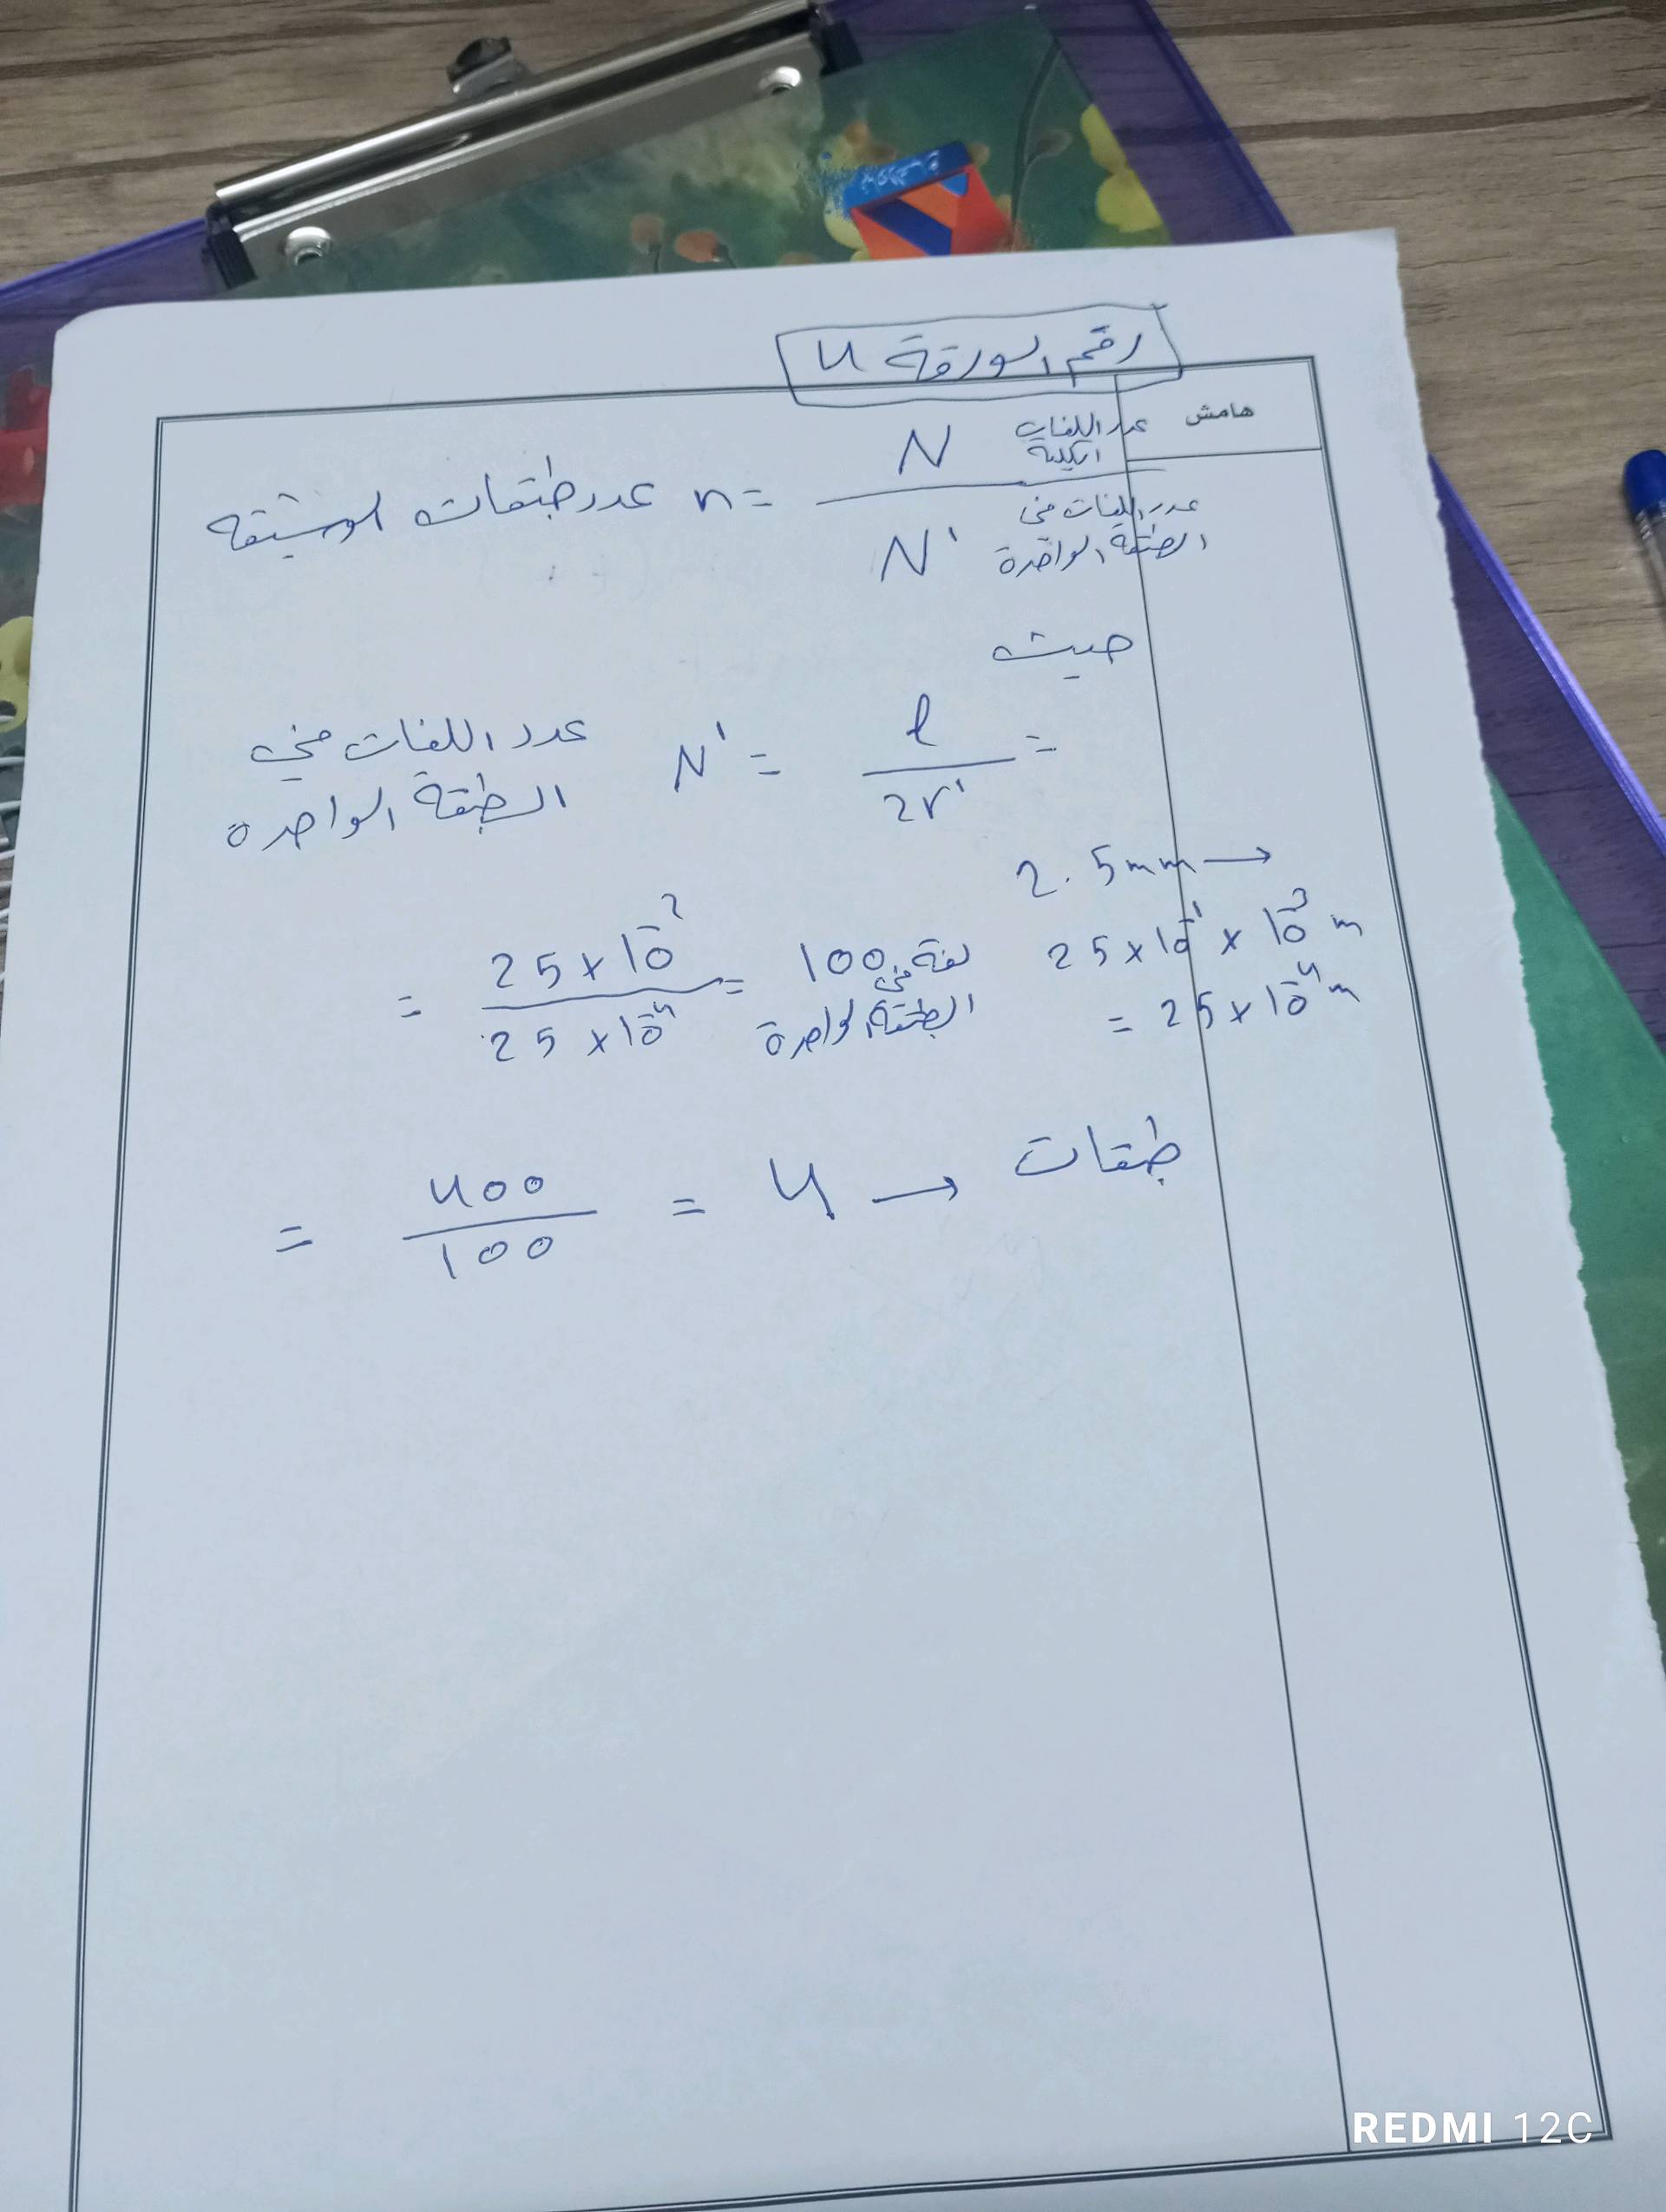 رقم الورقة 4
هامش
عدد طبقات الوشيعة n = N عدد اللفات الكلية
N' عدد اللفات في الطبقة الواحدة
حيث
عدد اللفات في الطبقة الواحدة N' = l / 2r' =
2.5mm →
25×10⁻¹ × 10⁻³ m
= 25×10⁻⁴ m
= 25×10⁻² / 25×10⁻⁴ = 100 لفة في الطبقة الواحدة
= 400 / 100 = 4 → طبقات
REDMI 12C